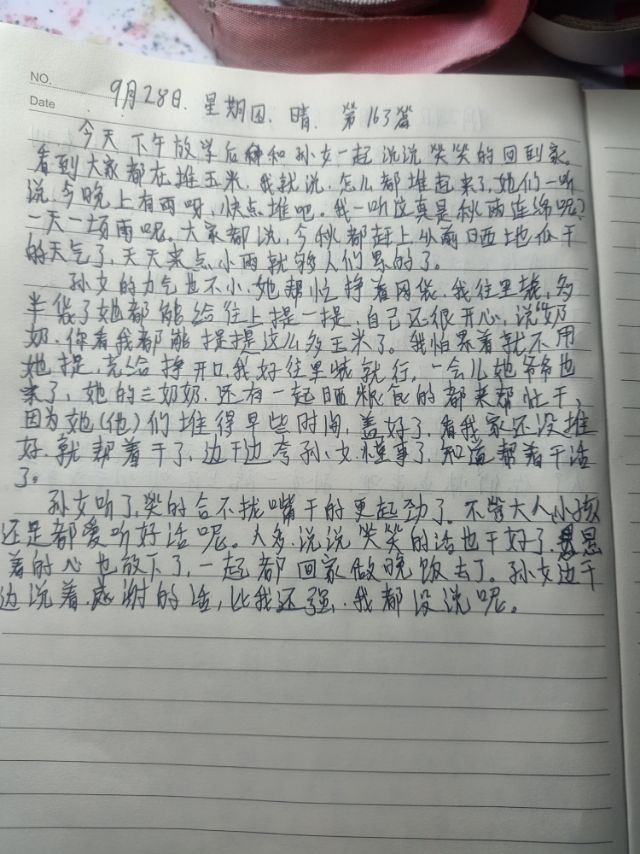 NO.
9月28日.星期四.晴.第163篇
Date
今天下午放学后和孙女一起说说笑笑的回到家。
看到大家都在堆玉米.我就说.怎么都堆起来了.她们一听
说.今晚上有雨呀.快点堆吧。我一听这真是秋雨连绵呢?
一天一场雨呢。大家都说,今秋都赶上以前晒地瓜干
的天气了.天天来点小雨就够人们累的了。
孙女的力气也不小.她帮忙挣着网袋.我往里装,多
半袋了她都能给往上提一提.自己还很开心,说"奶
奶.你看我都能提提这么多玉米了。我怕累着就不用
她提.光给挣开口.我好往里装就行,一会儿她爷爷也
来了,她的三奶奶.还有一起晒粮食的都来帮忙干,
因为她(他)们堆得早些时间,盖好了.看我家还没堆
好.就帮着干了.边干边夸孙女懂事了.知道帮着干活
了。
孙女听了.笑的合不拢嘴干的更起劲了。不管大人小孩
还是都爱听好话呢。人多.说说笑笑的活也干好了.悬
着的心也放下了,一起都回家做晚饭去了。孙女边干
边说着.感谢的话,比我还强.我都没说呢。